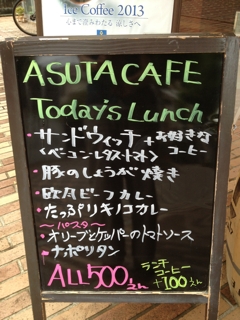 Ice Coffee 2013
心まで澄みわたる 涼しさへ
ASUTA CAFE
Today's Lunch
・サンドウィッチ+お好きなコーヒー
〈ベーコン・レタス・トマト〉
・豚のしょうが焼き
・欧風ビーフカレー
・たっぷりキノコカレー
〜パスタ〜
・オリーブとケッパーのトマトソース
・ナポリタン
ALL500えん
ランチコーヒー+100えん